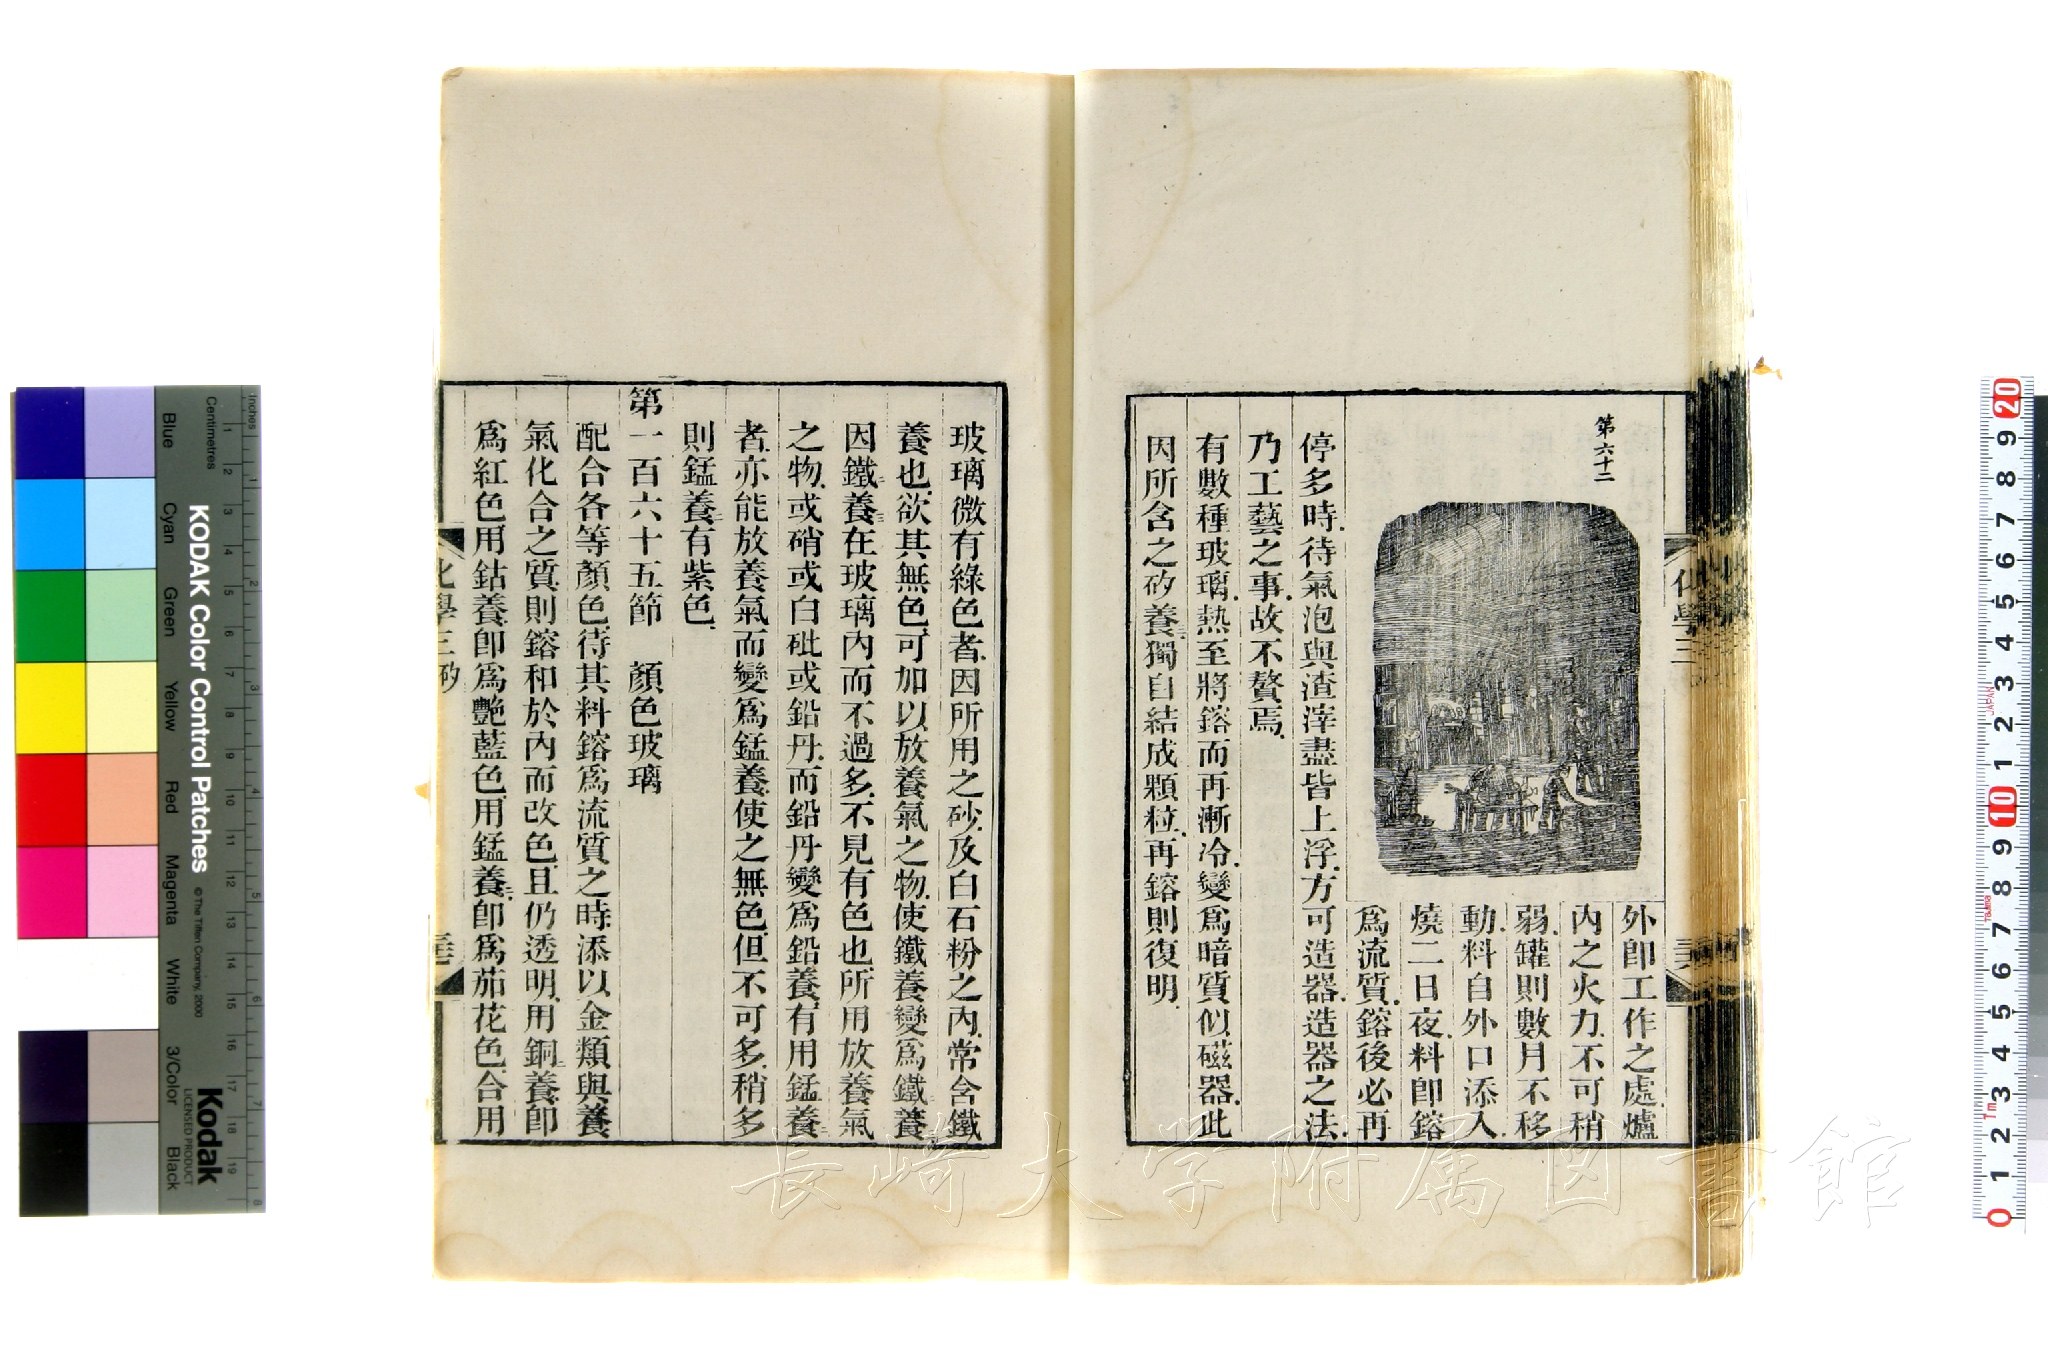 第六十二
外卽工作之處爐
內之火力不可稍
弱罐則數月不移
動料自外口添入
燒二日夜料卽鎔
爲流質鎔後必再
停多時待氣泡與渣滓盡皆上浮方可造器造器之法
乃工藝之事故不贅焉
有數種玻璃熱至將鎔而再漸冷變爲暗質似磁器此
因所含之矽養獨自結成顆粒再鎔則復明
玻璃微有綠色者因所用之砂及白石粉之內常含鐵
養也欲其無色可加以放養氣之物使鐵養變爲鐵養
因鐵養在玻璃內而不過多不見有色也所用放養氣
之物或硝或白砒或鉛丹而鉛丹變爲鉛養有用錳養
者亦能放養氣而變爲錳養使之無色但不可多稍多
則錳養有紫色
第一百六十五節 顏色玻璃
配合各等顏色待其料鎔爲流質之時添以金類與養
氣化合之質則鎔和於內而改色且仍透明用銅養卽
爲紅色用鈷養卽爲艷藍色用錳養卽爲茄花色合用
化學三 矽
化學三
長崎大学附属図書館
KODAK Color Control Patches
© The Tiffen Company, 2000
Kodak
LICENSED PRODUCT
Inches
Centimetres
Blue
Cyan
Green
Yellow
Red
Magenta
White
3/Color
Black